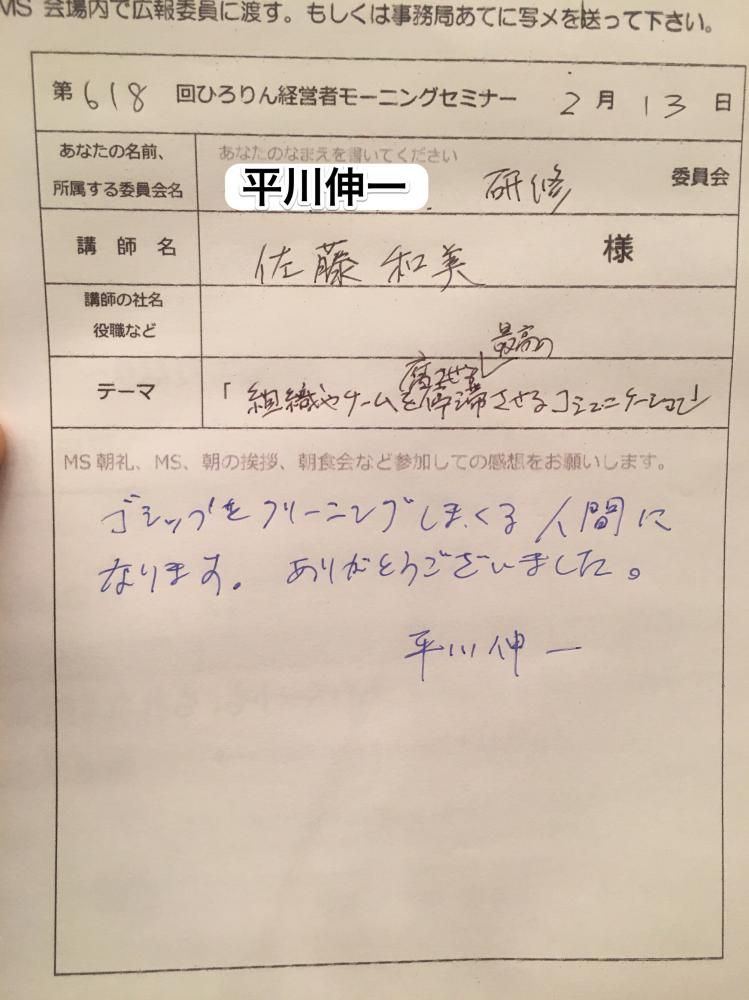 MS 会場内で広報委員に渡す。もしくは事務局あてに写メを送って下さい。
第618回ひろりん経営者モーニングセミナー 2月13日
あなたの名前、
所属する委員会名
あなたのなまえを書いてください
平川伸一 研修 委員会
講師名 佐藤和美 様
講師の社名
役職など
最高の
テーマ 「組織やチームを停滞させるコミュニケーション」
MS朝礼、MS、朝の挨拶、朝食会など参加しての感想をお願いします。
ゴシップをクリーニングしまくる人間に
なります。ありがとうございました。
平川伸一